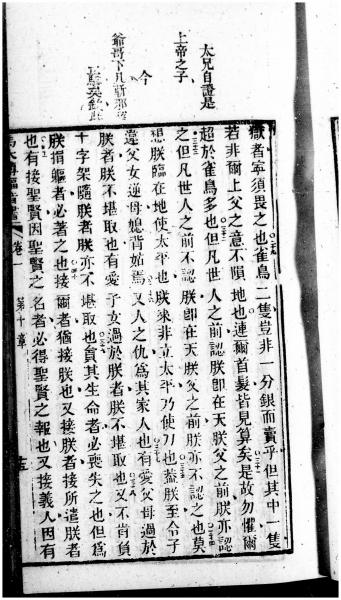 太兄自證是
上帝之子
今
爺哥下凡斬邪
獄者寧須畏之也雀鳥二隻豈非一分銀而賣乎但其中一隻
若非爾上父之意不隕地也連爾首髮皆見算矣是故勿懼爾
超於雀鳥多也但凡世人之前認朕卽在天朕父之前朕亦認
之但凡世人之前不認朕卽在天朕父之前朕亦不認之也莫
想朕臨在地使太平也朕來非立太平乃使刀也蓋朕至令子
違父女逆母媳背姑焉又人之仇爲其家人也有愛父母過於
朕者朕不堪取也有愛子女過於朕者朕不堪取也又不肯負
十字架隨朕者朕亦不堪取也負其生命者必喪失之也但爲
朕捐軀者必著之也接爾者猶接朕也又接朕者接所遣朕者
也有接聖賢因聖賢之名者必得聖賢之報也又接義人因有
卷一
第十章